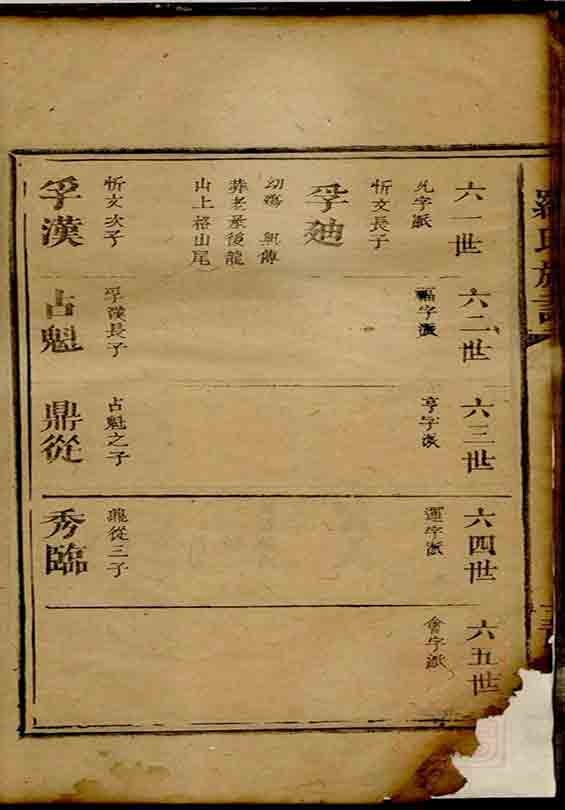 羅氏族譜
六一世
允字派
孚廸
忻文長子
幼殤 無傳
葬老屋後龍
山上格山尾
孚漢
忻文次子
六二世
福字派
占魁
孚漢長子
六三世
亨字派
鼎從
占魁之子
六四世
運字派
秀臨
鼎從三子
六五世
會字派